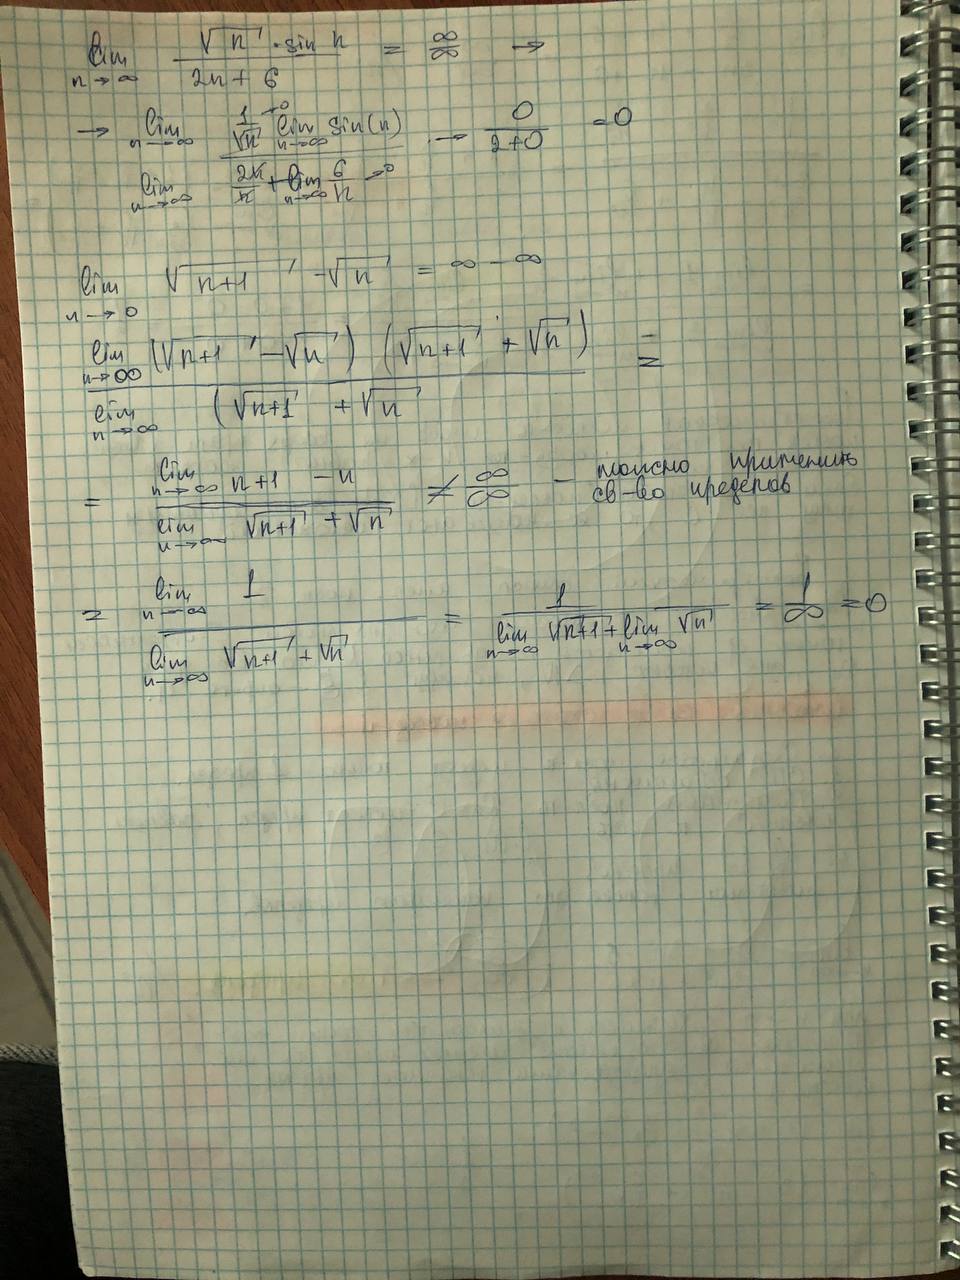 lim n→∞ √n · sin n / 2n + 6 = ∞/∞ →
→ lim n→∞ 1/√n →0 lim n→∞ sin(n) / lim n→∞ 2n/n + lim n→∞ 6/n →0 → 0/2+0 = 0
lim n→0 √n+1 - √n = ∞ - ∞
lim n→∞ (√n+1 - √n) (√n+1 + √n) / lim n→∞ (√n+1 + √n =
= lim n→∞ n+1 - n / lim n→∞ √n+1 + √n ≠ ∞/∞ - можно применить
св-во пределов
= lim n→∞ 1 / lim n→∞ √n+1 + √n = 1 / lim n→∞ √n+1 + lim n→∞ √n = 1/∞ = 0